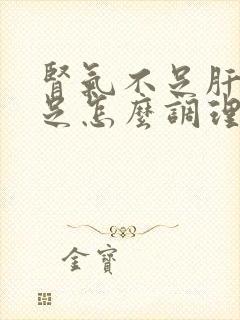 腎氣不足肝
足怎麼調理
金寶